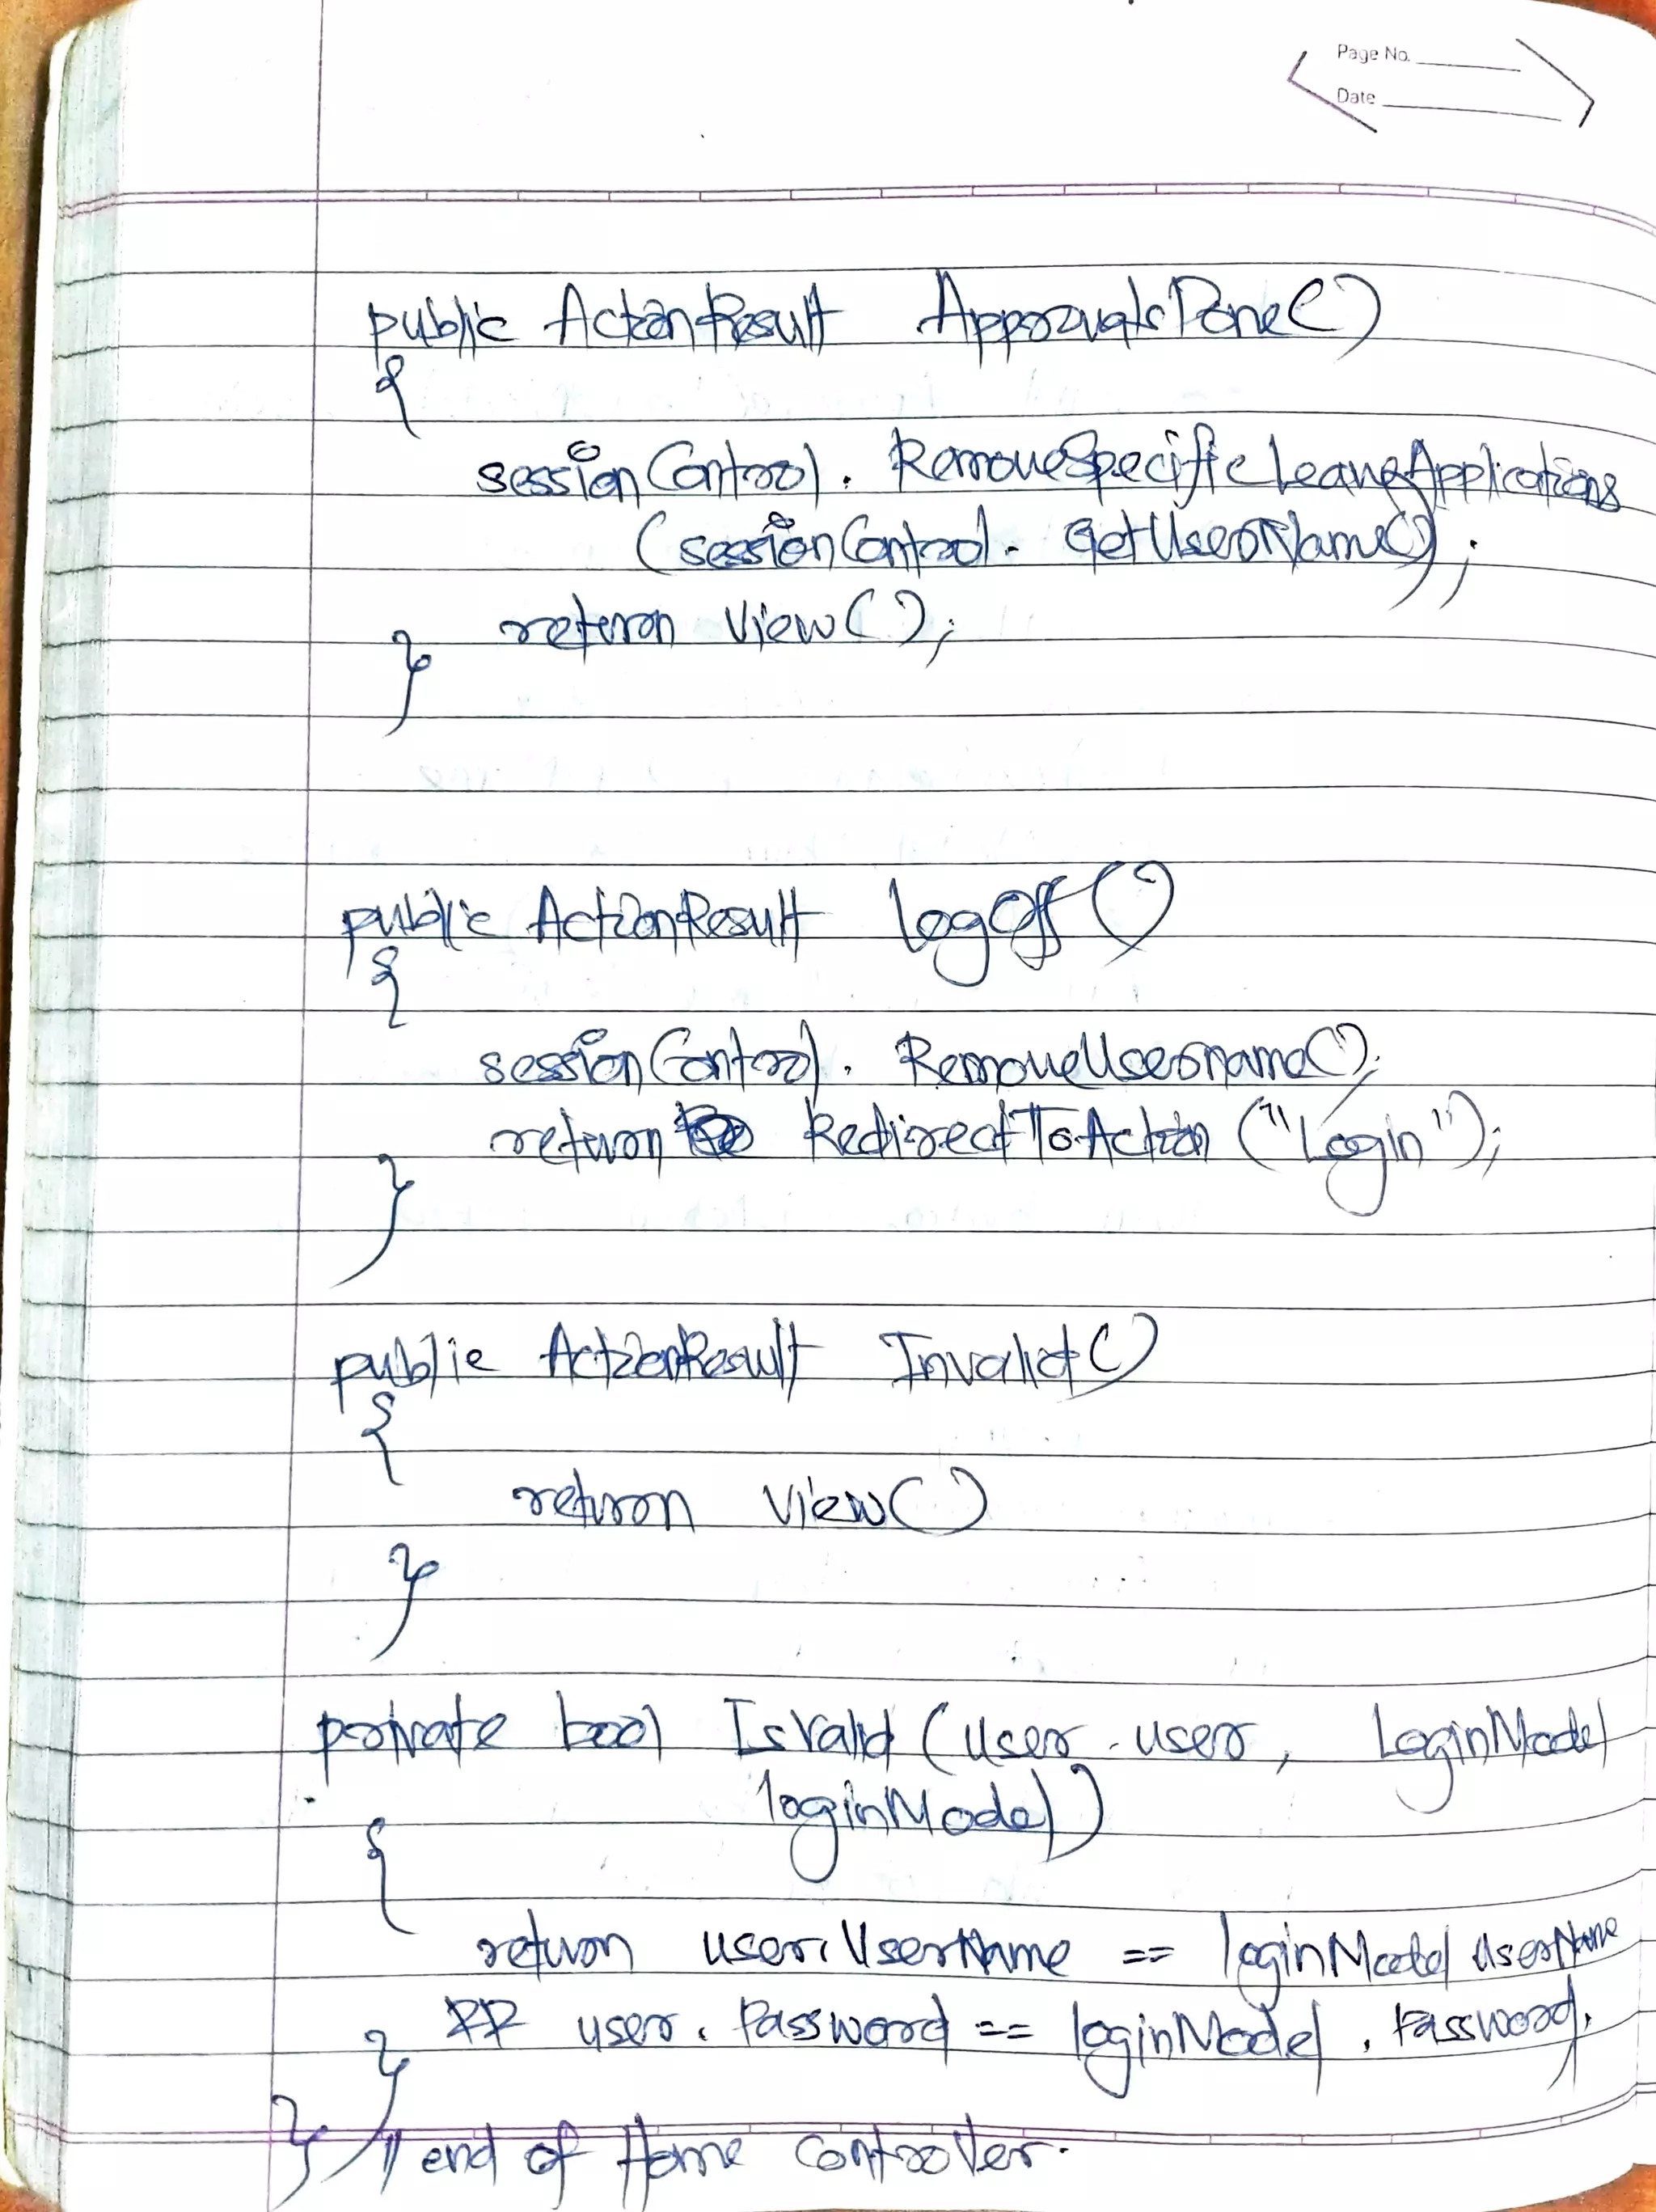 Page No.
Date
public ActionResult ApprovalsDone()
{
sessionControl. RemoveSpecificLeaveApplications
(sessionControl. GetUserName());
return View();
}
public ActionResult LogOff()
{
sessionControl. RemoveUsername();
return RedirectToAction ("Login");
}
public ActionResult Invalid()
{
return View()
}
private bool IsValid (User user, LoginModel
loginModel)
{
return user.UserName == loginModel UserName
&& user. Password == loginModel. Password;
}
} // end of Home controller.